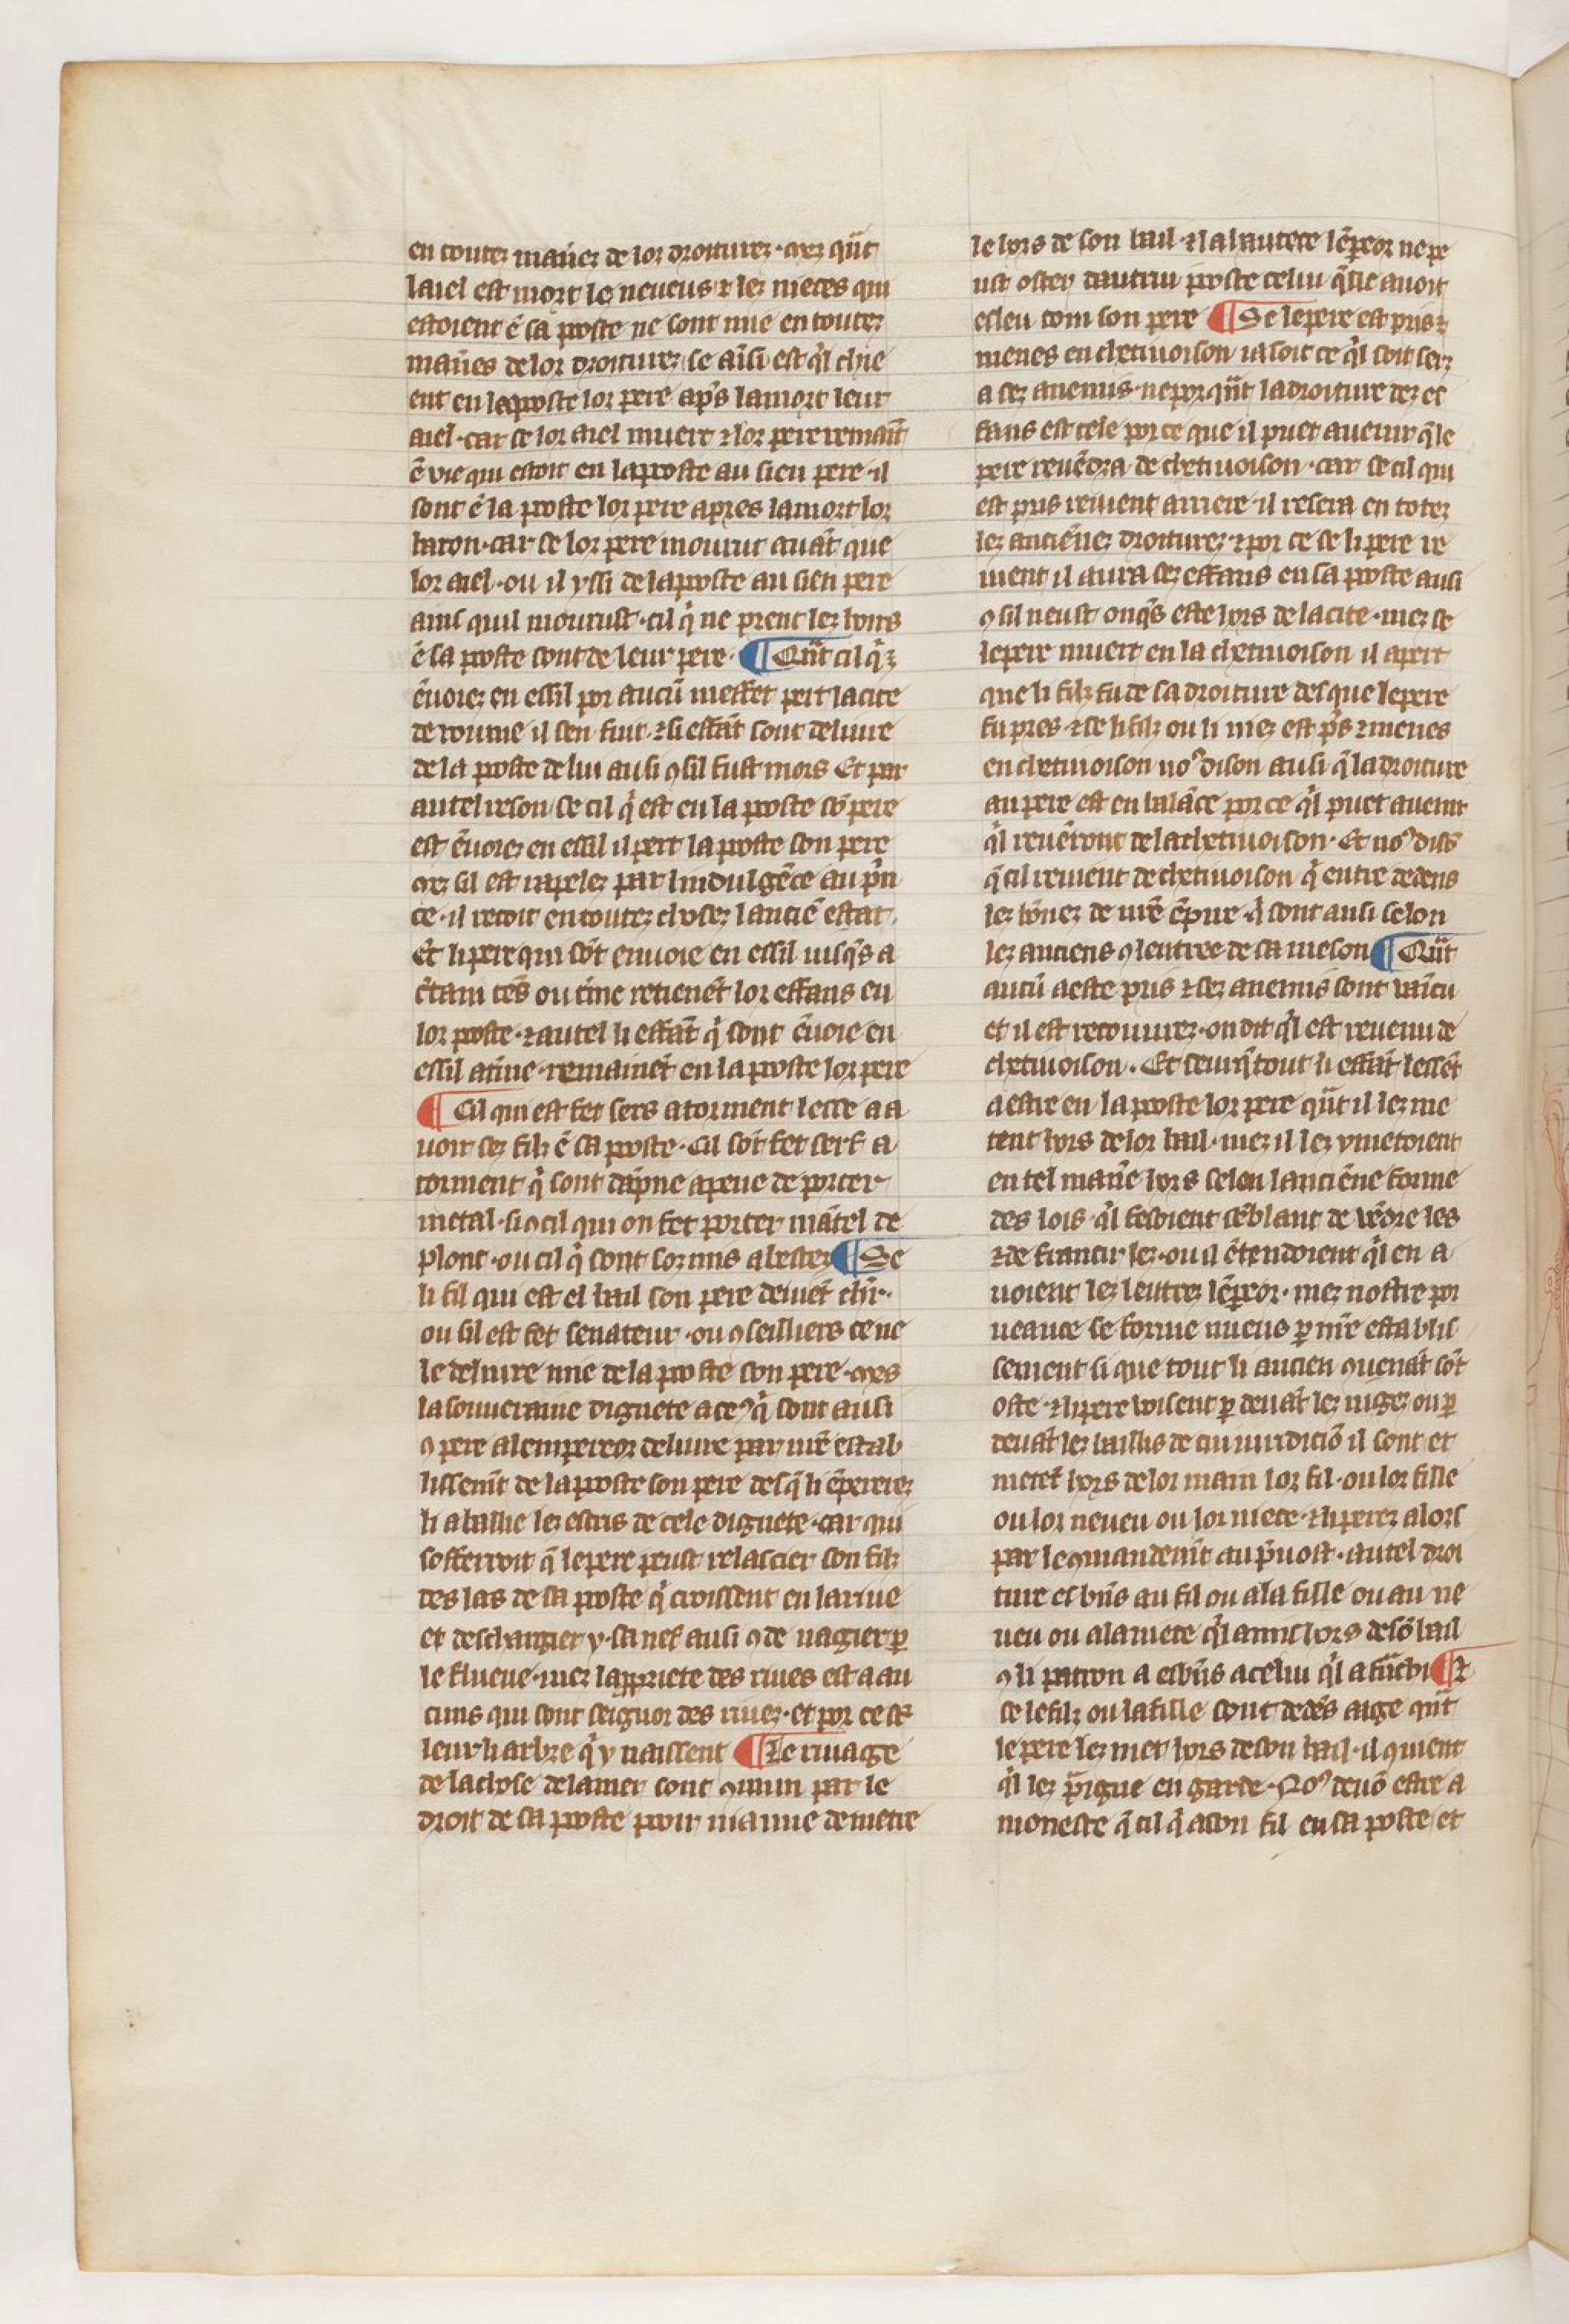 en toutez manıez de lor droiturez · mez qñt
laiel est mort le neueus ⁊ lez nieces qui
estoient ẽ sa poste ne sont mie en toutez
manẽs de lor droiturez se ainsi est qͥl chie
ent en leqposte lor pere apͥs lamort leur
aiel · car se lor aiel muert ⁊ lor pere remaīt
ẽ vie qui estoit en la poste au sien pere · il
sont ẽ la poste lor pere apres lamort lor
baron · car se lor pere mourut auãt que
lor aiel · ou il yssi de la poste au sien pere
ains quil mourust · cil qͥ ne prent lez hoirs
ẽ sa poste sont de leur pere · ¶ Qñt cil qͥ ⁊
ẽuoiez en essil por aucũ meffet pert la cite
de roume il sen fuit · ⁊ si effãt sont deliure
de la poste de lui ausi ꝯ sil fust mors Et par
autel reson se cil qͥ est en la poste sõ pere
est ẽuoiez en essil il pert la poste son pere
mez sil est rapelez par lindulgẽce au pͥn
ce · il recoit en toutez chosez lanciẽ estat ·
Et li pere qui sõt enuoie en essil iusqͣs a
c̾tain tẽs ou t̾me retienẽt lor effans en
lor poste · ⁊ autel li effãt qͥ sont ẽuoie en
essil a t̾me · remainẽt en la poste lor pere
¶ Cil qui est fet sers a torment lesse a a
uoir sez filz ẽ sa poste · Cil sõt fet serf a
torment qͥ sont dãpne a pene de porter
metal · si ꝯ cil qui on fet porter mãtel de
plont · ou cil qͥ sont sozmis a bestez ¶ Se
li fil qui est el bail son pere deuiẽt chr̃ ·
ou sil est fet senateur · ou ꝯseilliers ce ne
le deliure mie de la poste son pere · mes
la souueraine dignete a ceꝰ qͥ sont ausi
ꝯ pere a lempereor deliure par nr̃e estab
lissemt̃ de la poste son pere des qͣ li ẽpererez
li a baillie lez escris de cele dignete · car qui
sofferroit q̃ le pere peust relaschier son filz
des las de sa poste qͥ croissent en la riue
et deschargier y · sa nef ausi ꝯ de nagier ꝑ
le flueue · mez lappriete des riues est a au
cuns qui sont seignor des riuez · et por ce st̃
leur li arbre qͥ y naissent ¶ Le riuage
de la chose de la mer sont ꝯmun par le
droit de sa poste poır manue de metre
le hors de son bail · ⁊ la lautete lẽpeor ne pe
ust oster dautrui poste celui q̃lle auoit
esleu com son pere ¶ Se le pere est pris ⁊
menes en chetiuoison ia soit ce qͥl soit sers
a sez anemis · neporqñt la droiture dez ef
fans est tele por ce que il puet auenir q̃ le
pere reuẽdra de chetiuoison · car se cil qui
est pris reuient arriere · il resera en totez
lez anciẽnez droiturez · ⁊ por ce se li pere re
uient il aura sez effans en sa poste ausi
ꝯ sil neust onqͣs este hors de la cite · mez se
le pere muert en la chetiuoison il apert
que li filz fu de sa droiture des que le pere
fu pres · ⁊ se li filz ou li niez est pͥs ⁊ menes
en chetiuoison noꝰ dison ausi q̃ la droiture
au pere est en balãce por ce qͥl puet auenir
qͥl reuẽront de la chetiuoison · Et noꝰ disõ
q̃ cil reuient de chetiuoison qͥ entre dedens
lez bõnez de nr̃e ẽpire · qͥ sont ausi selon
lez anciens ꝯ lentree de sa meson ¶ Qñt
aucũ a este pris ⁊ sez anemis sont vaīcu
et il est recouurez · on dit qͥl est reuenu de
chetiuoison · Et seurq̃tout li effãt lessẽt
a estre en la poste lor pere qñt il lez me
tent hors de lor bail · mez il lez y metoient
en tel maniẽ hors selon lanciẽne forme
des lois · qͥl fesoient sẽblant de vẽdre les
⁊ de franchir lez · ou il ẽtendoient qͥl en a
uoient lez lettrez lẽpeor · mez nostre por
ueance se forme mieus ꝑ nr̃e establis
sement si que tout li ancien ꝯuenãt sõt
oste · ⁊ li pere voisent ꝑ deuãt lez iugez ou ꝑ
deuãt lez baillis de cui iuridiciõ il sont et
metẽt hors de lor main lor fil · ou lor fille
ou lor neueu ou lor niece · ⁊ li perez a lors
par le ꝯmandemt̃ au p̃uost · autel droi
ture es biẽs au fil ou a la fille ou au ne
ueu ou a la niece qͥl a mis hors de sõ bail
ꝯ li patron a es biẽs a celui qͥl a frãchi ¶ ⁊
se le filz ou la fille sont dedẽs aige qñt
le pere lez met hors de son bail · il ꝯuient
qͥl lez p̃igne en garde · Noꝰ deuõ estre a
moneste q̃ cil qͥ a son fil en sa poste et